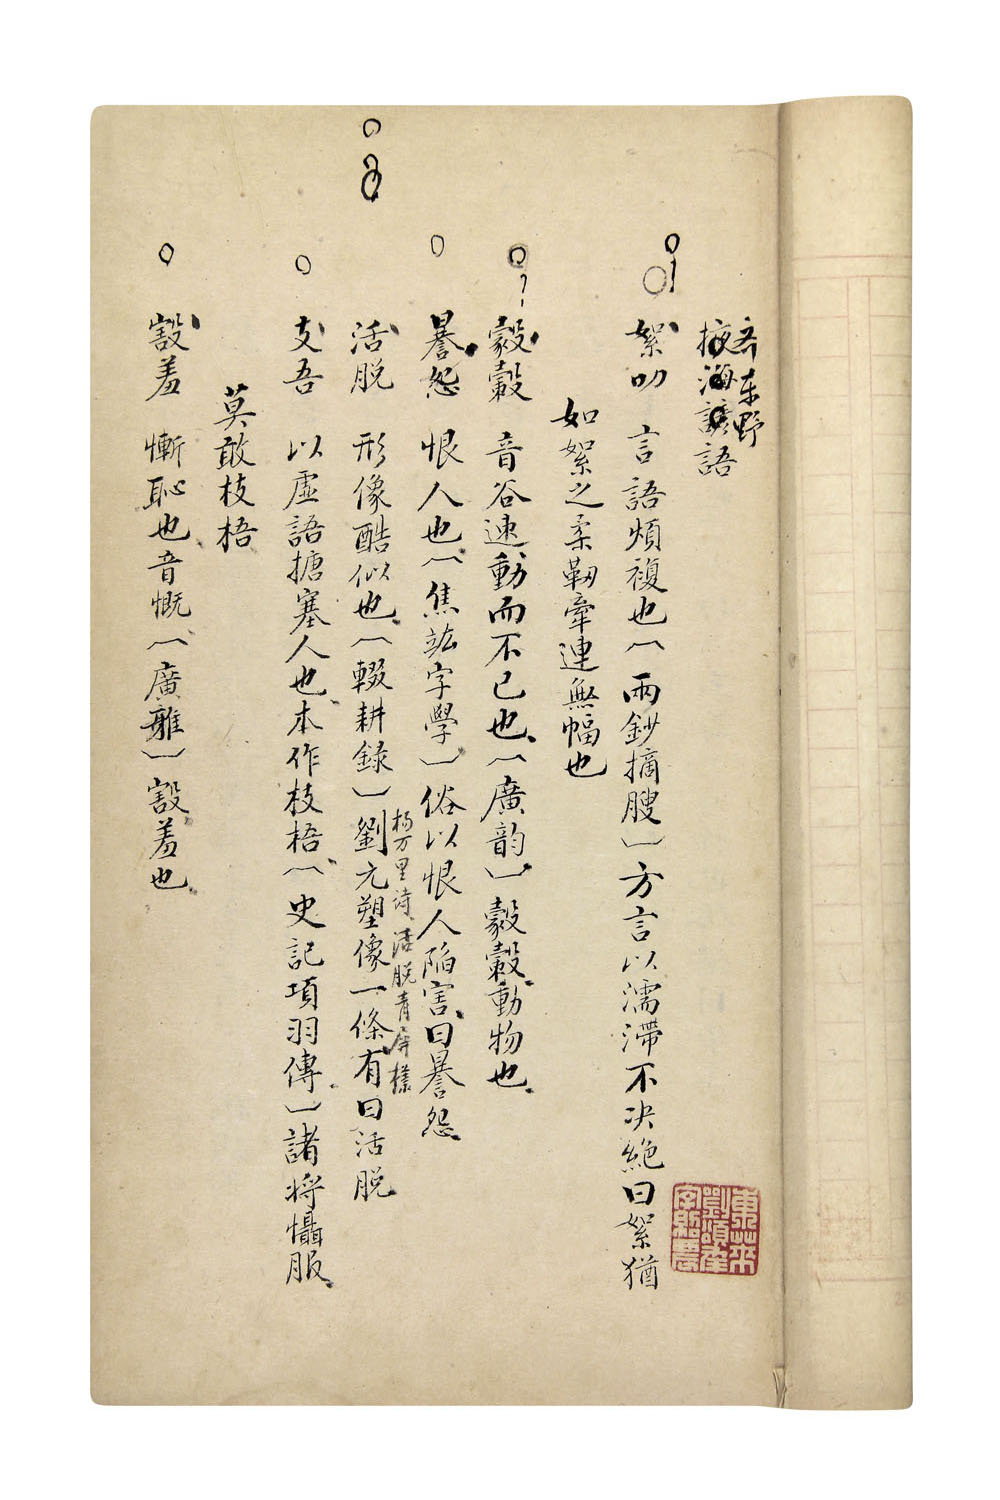 齐东野
掖海諺語
絮叨 言語煩複也︹兩鈔摘腴︺方言以濡滯不决絶曰絮猶
如絮之柔韌牽連無幅也
音谷速動而不已也︹廣韵︺動物也
㬥怨 恨人也︹焦竑字學︺俗以恨人陷害曰㬥怨
楊万里诗活脫青屏樣
活脫 形像酷似也︹輟耕錄︺劉元塑像一條有曰活脫
支吾 以虛語搪塞人也本作枝梧︹史記項羽傳︺諸将懾服
莫敢枝梧
羞 慚恥也音慨︹廣雅︺羞也
東萊
劉頌年